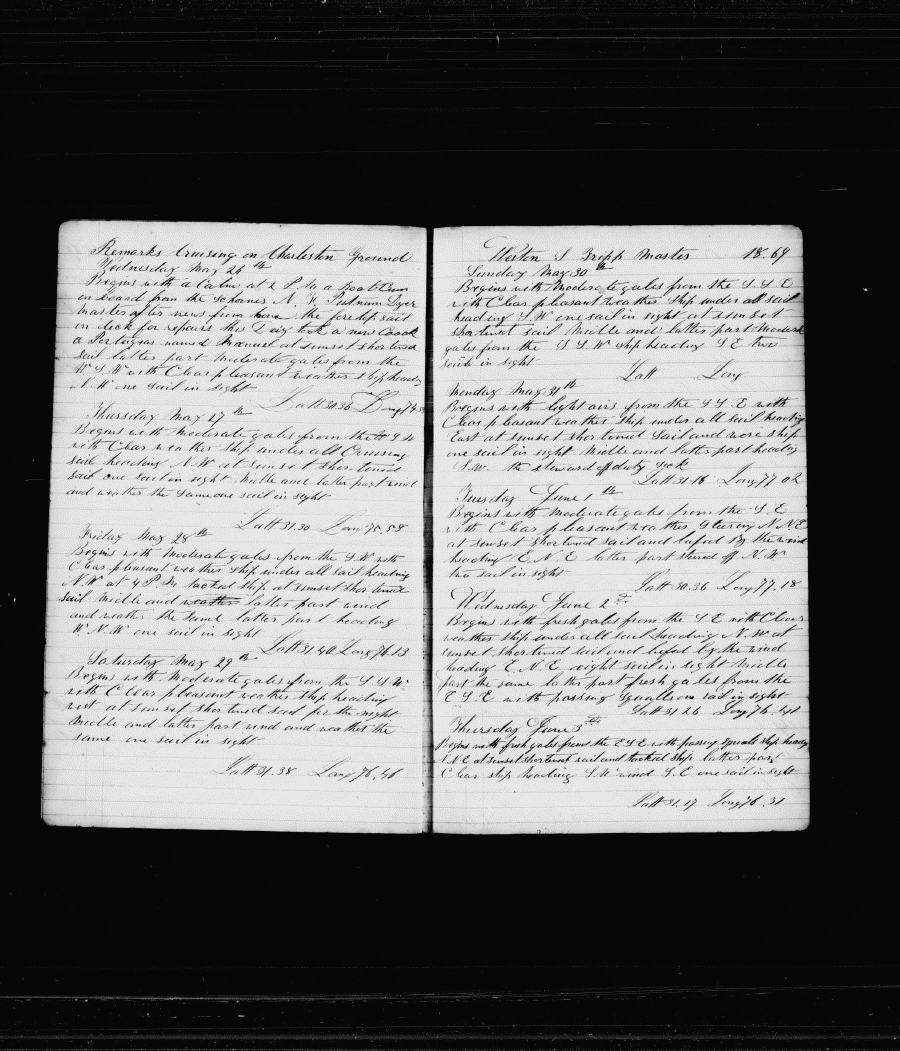 Remarks Cruising on Charleston Ground
Wednesday May 26th
Begins with a Calm at 2 P.M. a Boat Came
on board from the Schoner A. H. Putnum Dyer
master after news from home the fore top sail
on deck for repairs this Day took a new Cook
a Portugues named Manuel at sunset shortened
sail latter part Moderate gales from the
W S W with Clear pleasant weather ship heading
N.W one sail in sight
Latt 30.36 Long 74
Thursday May 27th
Begins with Moderate gales from the W S W
with Clear weather ship under all Cruising
sail heading N.W at sunset shortened
sail one sail in sight midle and latter part wind
and weather the same one sail in sight
Latt 31.30 Long 75.58
Friday May 28th
Begins with Moderate gales from the S.W with
Clear pleasant weather ship under all sail heading
N.W at 4 P M tacked ship at sunset shortened
sail midle and weather latter part wind
and weather the same latter part heading
W N.W one sail in sight
Latt 31.40 Long 76.13
Saturday May 29th
Begins with Moderate gales from the S S W
with Clear pleasant weather ship heading
west at sunset shortened sail for the night
midle and latter part wind and weather the
same one sail in sight
Latt 31.38 Long 76.48
Weston S Tripp Master 18.69
Sunday May 30th
Begins with Moderate gales from the S S E
with Clear pleasant weather ship under all sail
heading S.W one sail in sight at sunset
shortened sail midle and latter part moderate
gales from the S S W ship heading S E two
sail in sight
Latt Long
Monday May 31th
Beggins with light airs from the S S E with
Clear pleasant weather ship under all sail heading
East at sunset shortened sail and wore ship
one sail in sight midle and latter part heading
S.W. the steward off duty sick
Latt 31.18 Long 77 02
Tuesday June 1th
Begins with Moderate gales from the S E
with Clear pleasant weather stearing N.N.E
at sunset shortened sail and lufed by the wind
heading E.N.E latter part stered off N.W
two sail in sight
Latt 30.36 Long 77.18
Wednesday June 2nd
Begins with fresh gales from the S E with Clear
weather ship under all sail heading N.W at
sunset shortened sail and lufed by the wind
heading E.N.E eight sail in sight midle
part the same latter part fresh gales from the
E S E with passing squales one sail in sight
Latt 31 26 Long 76.41
Thursday June 3th
Begins with fresh gales from the E S E with passing squals ship heading
N E at sunset shortened sail and tacked ship latter part
Clear ship heading S W wind S.E one sail in sight
Latt 31.17 Long 76.31